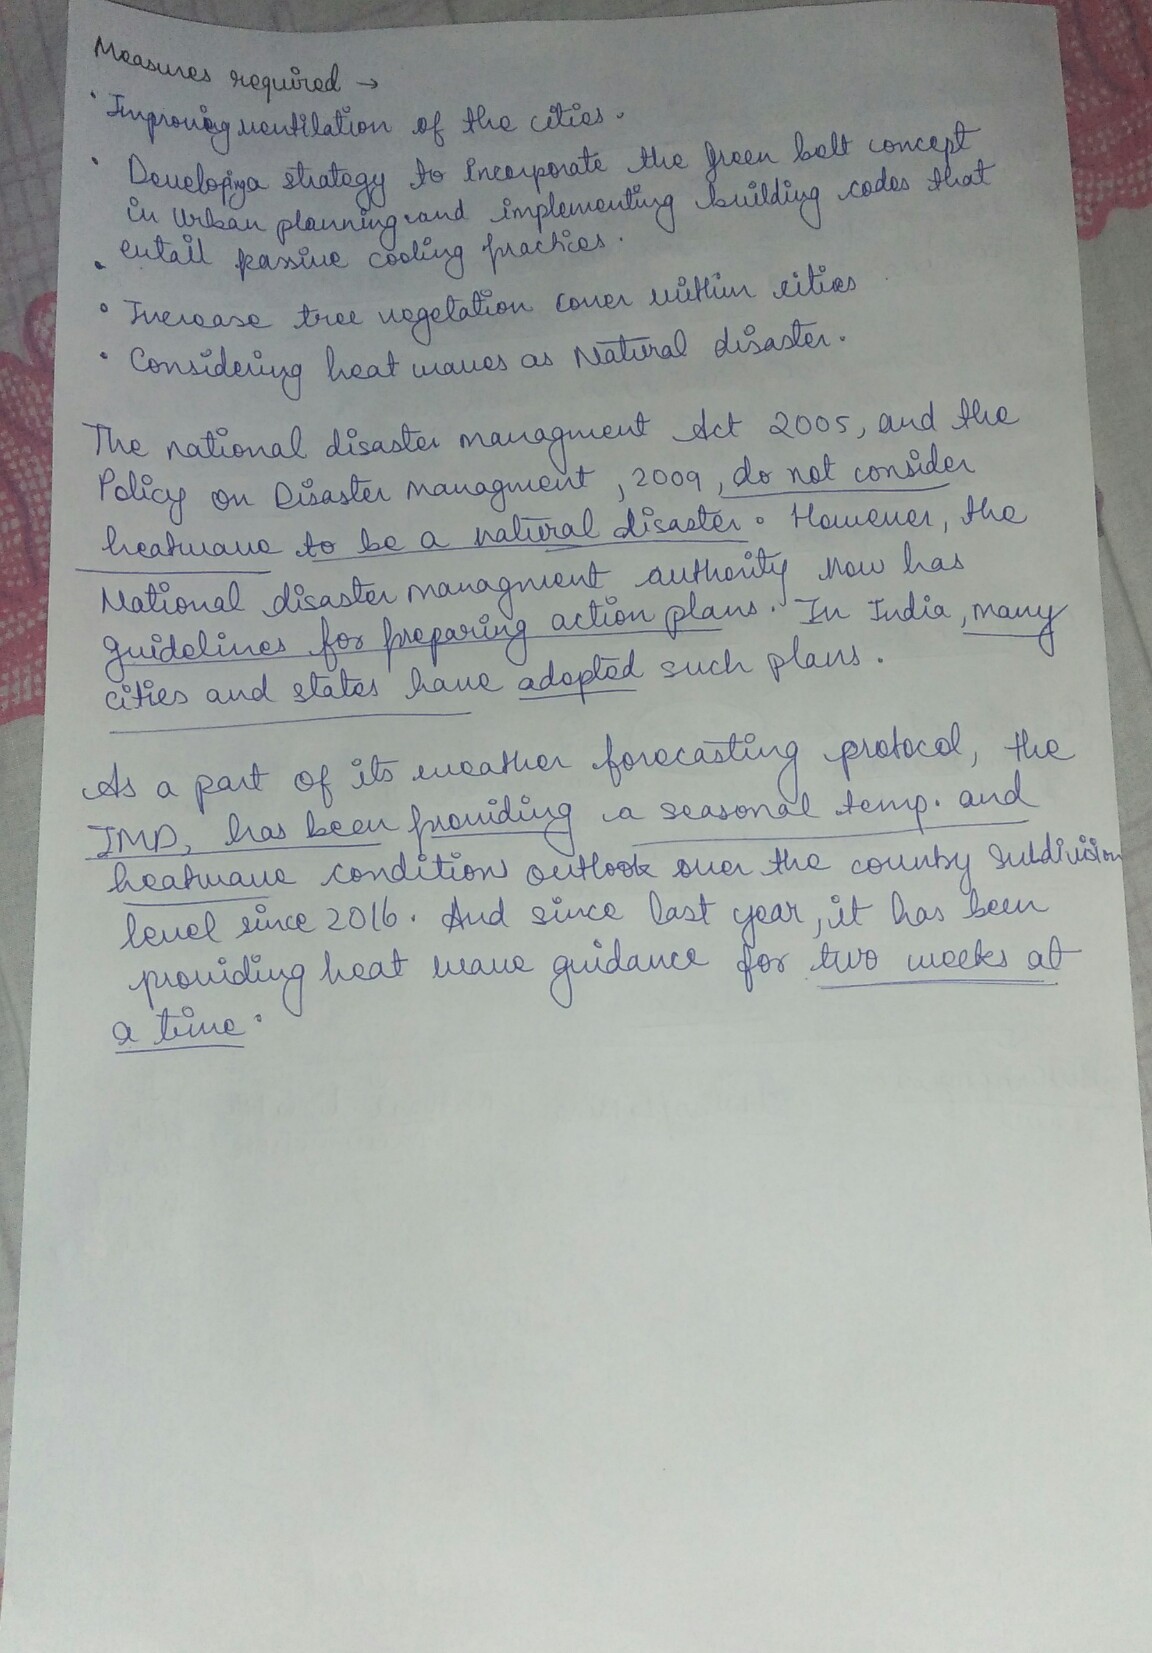 Measures required →
• Improving ventilation of the cities.
• Developing a strategy to incorporate the green belt concept
in urban planning and implementing building codes that
entail passive cooling practices.
•
• Increase tree vegetation cover within cities
• Considering heat waves as Natural disaster.
The national disaster managment Act 2005, and the
Policy on Disaster managment, 2009, do not consider
heatwave to be a natural disaster. However, the
National disaster managment authority now has
guidelines for preparing action plans. In India, many
cities and states have adopted such plans.
As a part of its weather forecasting protocol, the
IMD, has been providing a seasonal temp. and
heatwave condition outlook over the country subdivision
level since 2016. And since last year, it has been
providing heat wave guidance for two weeks at
a time.